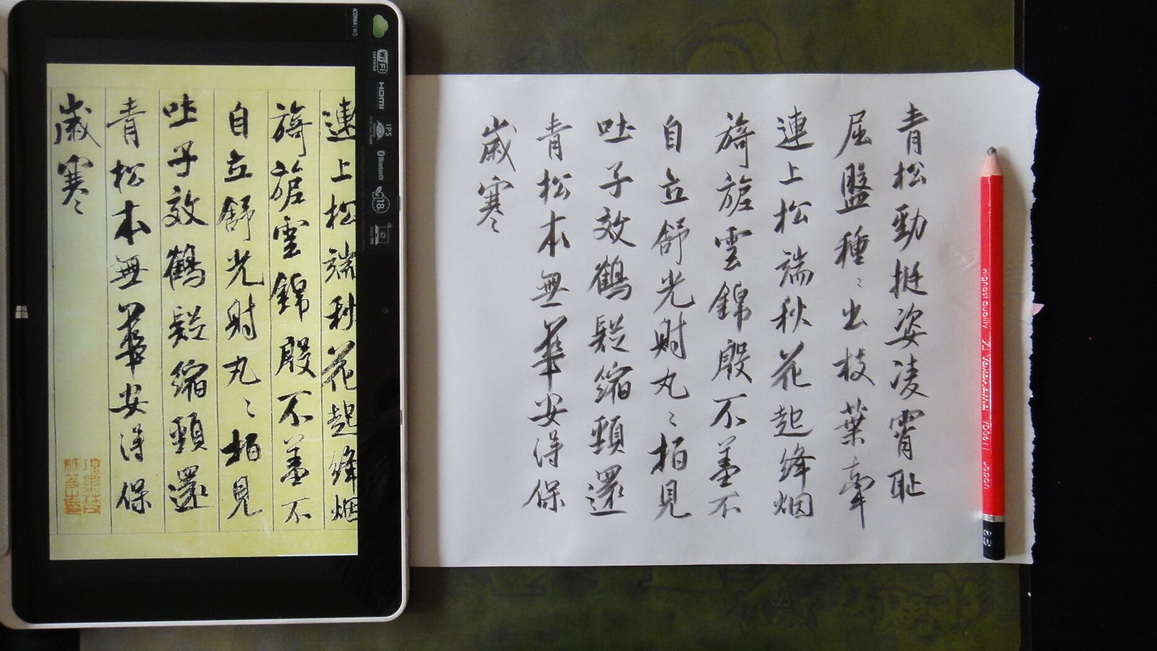 青松勁挺姿凌霄恥
屈盤種々出枝葉牽
連上松端秋花起絳烟
旖旎雲錦殷不羞不
自立舒光射丸々柏見
吐子效鶴疑縮頸還
青松本無華安得保
歲寒
連上松端秋花起絳烟
旖旎雲錦殷不羞不
自立舒光射丸々柏見
吐子效鶴疑縮頸還
青松本無華安得保
歲寒
WiFi
HDMI
IPS
Bluetooth